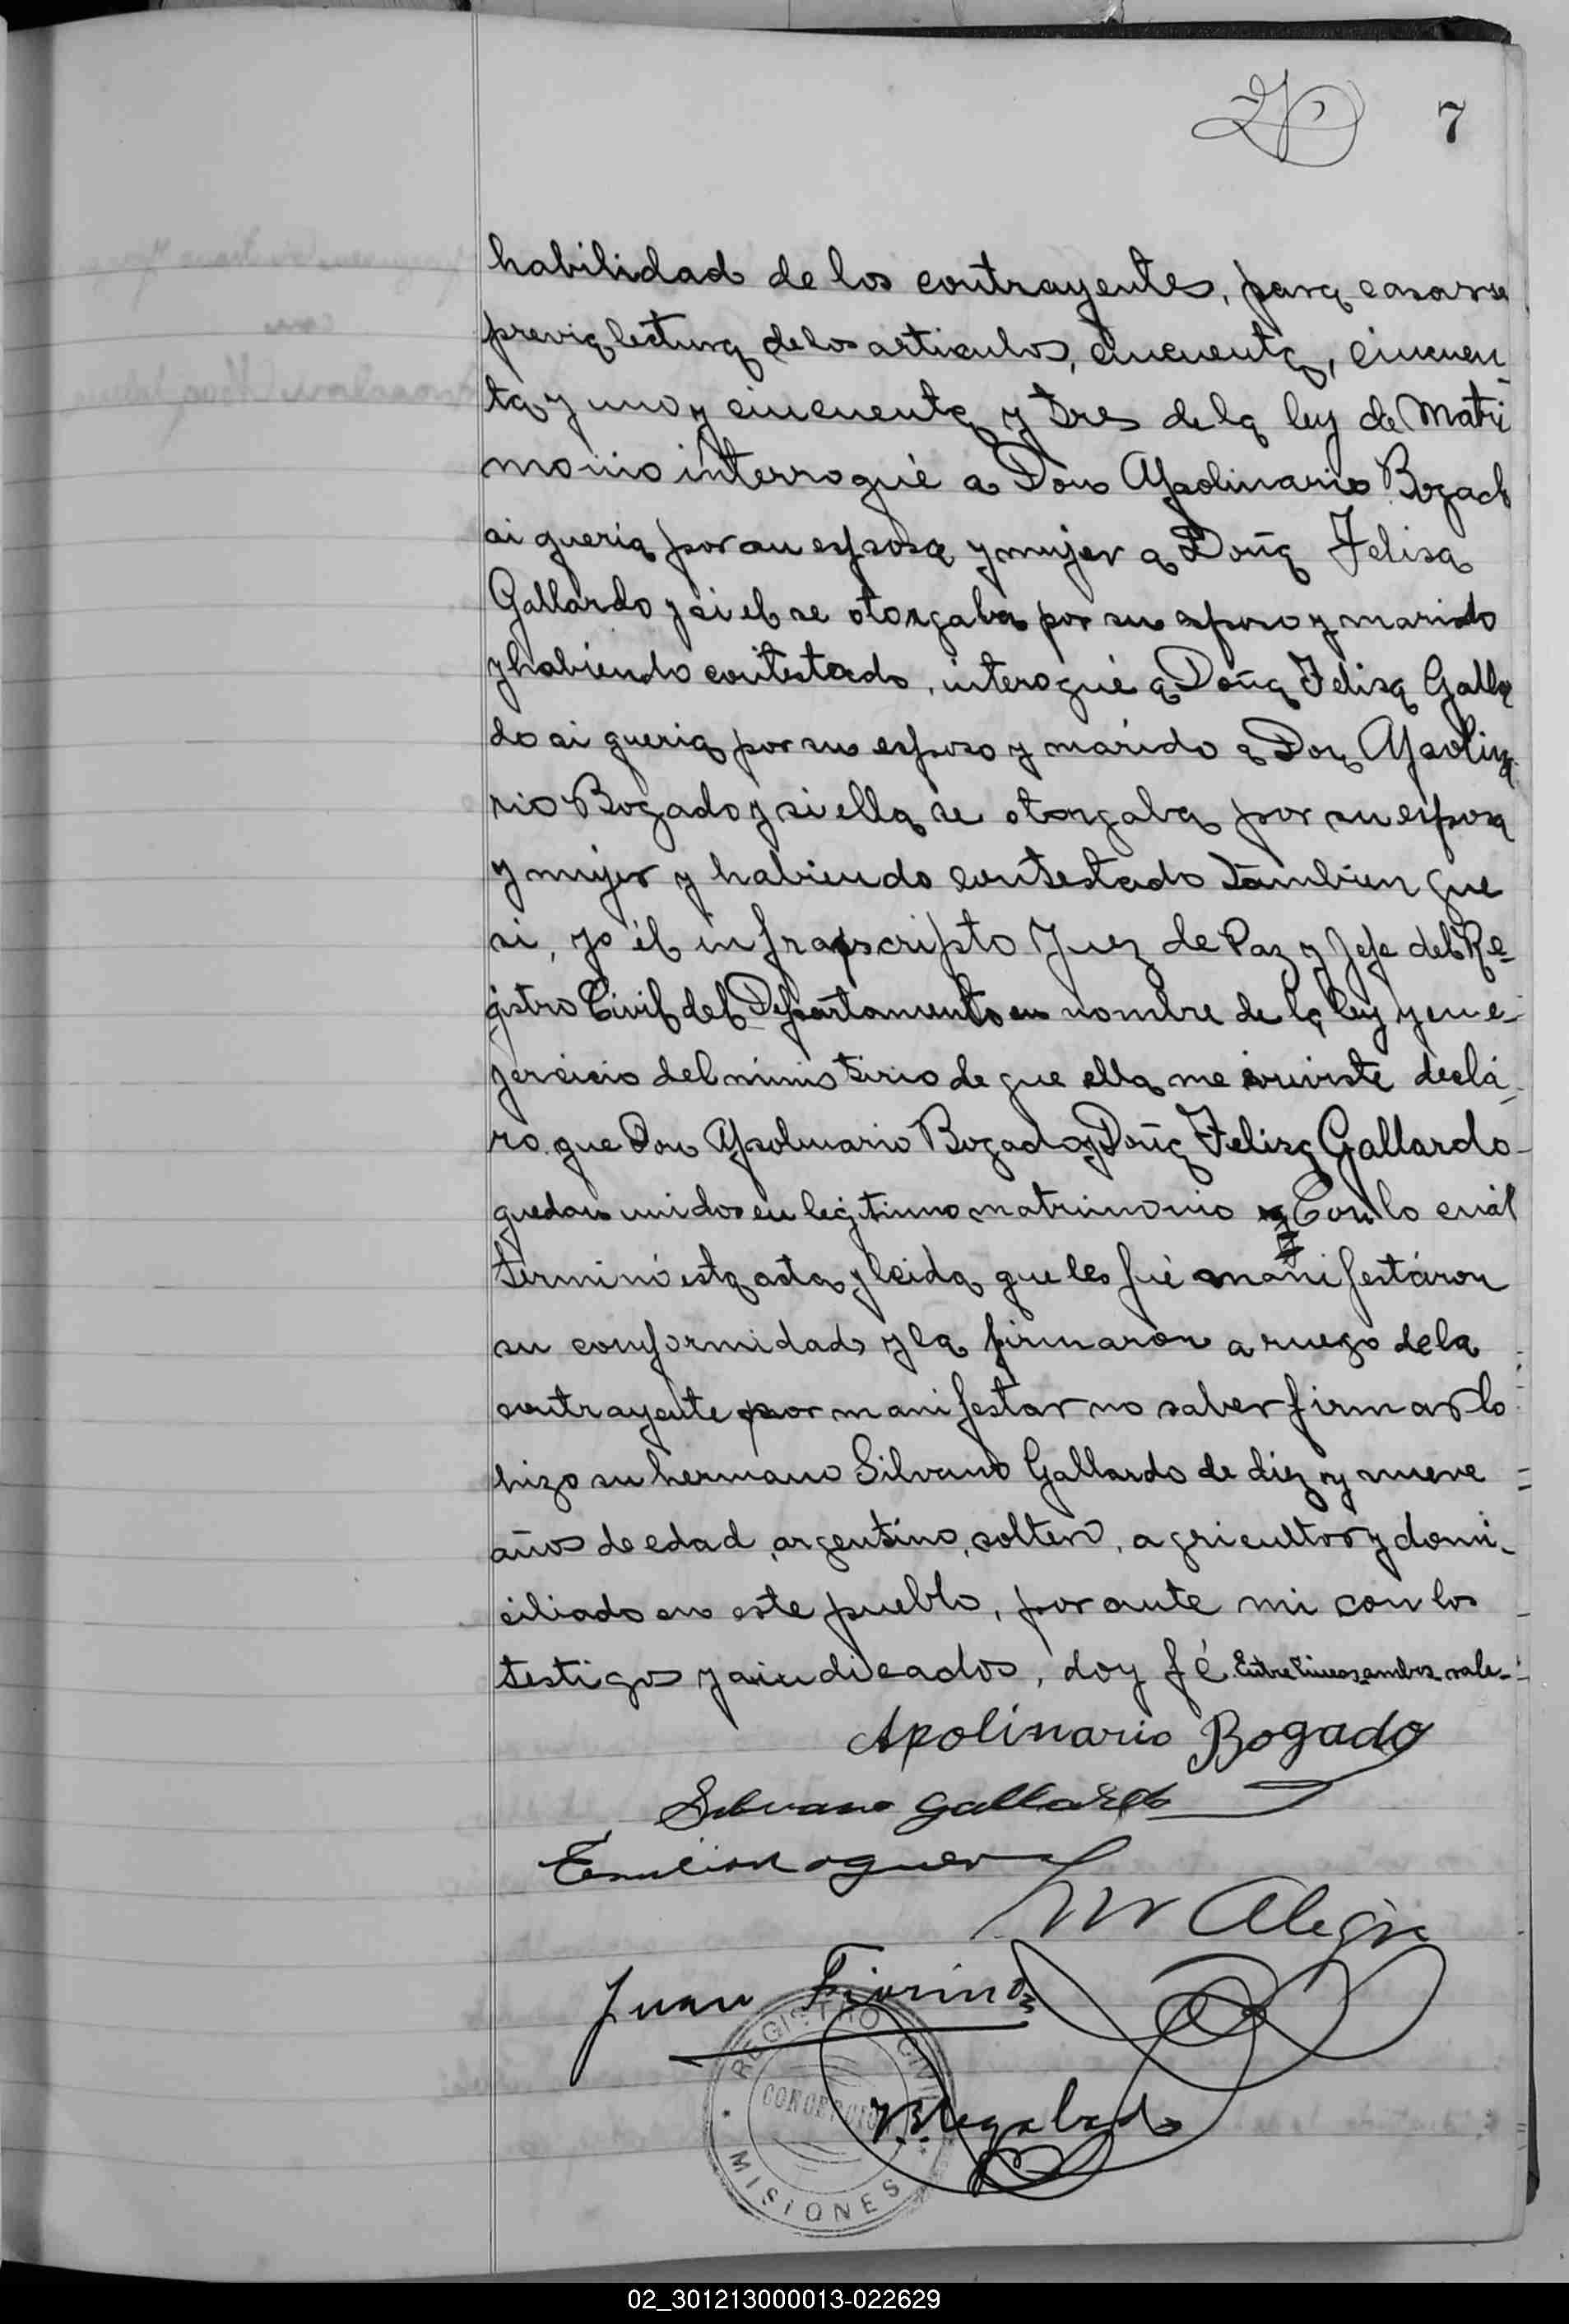 7
habilidad de los contrayentes, para casarse
previa lectura de los articulos, cincuenta, cincuen
ta y uno y cincuenta y tres de la ley de Matri
monio interrogué a Don Apolinario Bogado
si queria por su esposa y mujer a Doña Felisa
Gallardo y si el se otorgaba por su esposo y marido
y habiendo contestado, interogué a Doña Felisa Galla
do si queria por su esposo y marido a Don Apolina
rio Bogado y si ella se otorgaba por su esposa
y mujer y habiendo contestado tambien que
si, yo el infrascripto Juez de Paz y Jefe del Re-
gistro Civil del Departamento en nombre de la ley y en e-
jercicio del ministerio de que ella me inviste declá-
ro que Don Apolinario Bogado y Doña Felisa Gallardo-
quedan unidos en legitimo matrimonio Con lo cuál
terminó esta acta y leida que les fué manifestáron
su conformidad y la firmaron a ruego de la
contrayente por manifestar no saber firmar lo
hizo su hermano Silvano Gallardo de diez y nueve
años de edad, argentino, soltero, agricultor y domi-
ciliado en este pueblo, por ante mi con los
testigos ya indicados, doy fé Entre lineas=ambos=vale-
Apolinario Bogado
Silvano Gallardo
Emilio Noguera
M Alegre
Juan Fiorino
REGISTRO CIVIL
CONCEPCION
Regalado
MISIONES
02_301213000013-022629